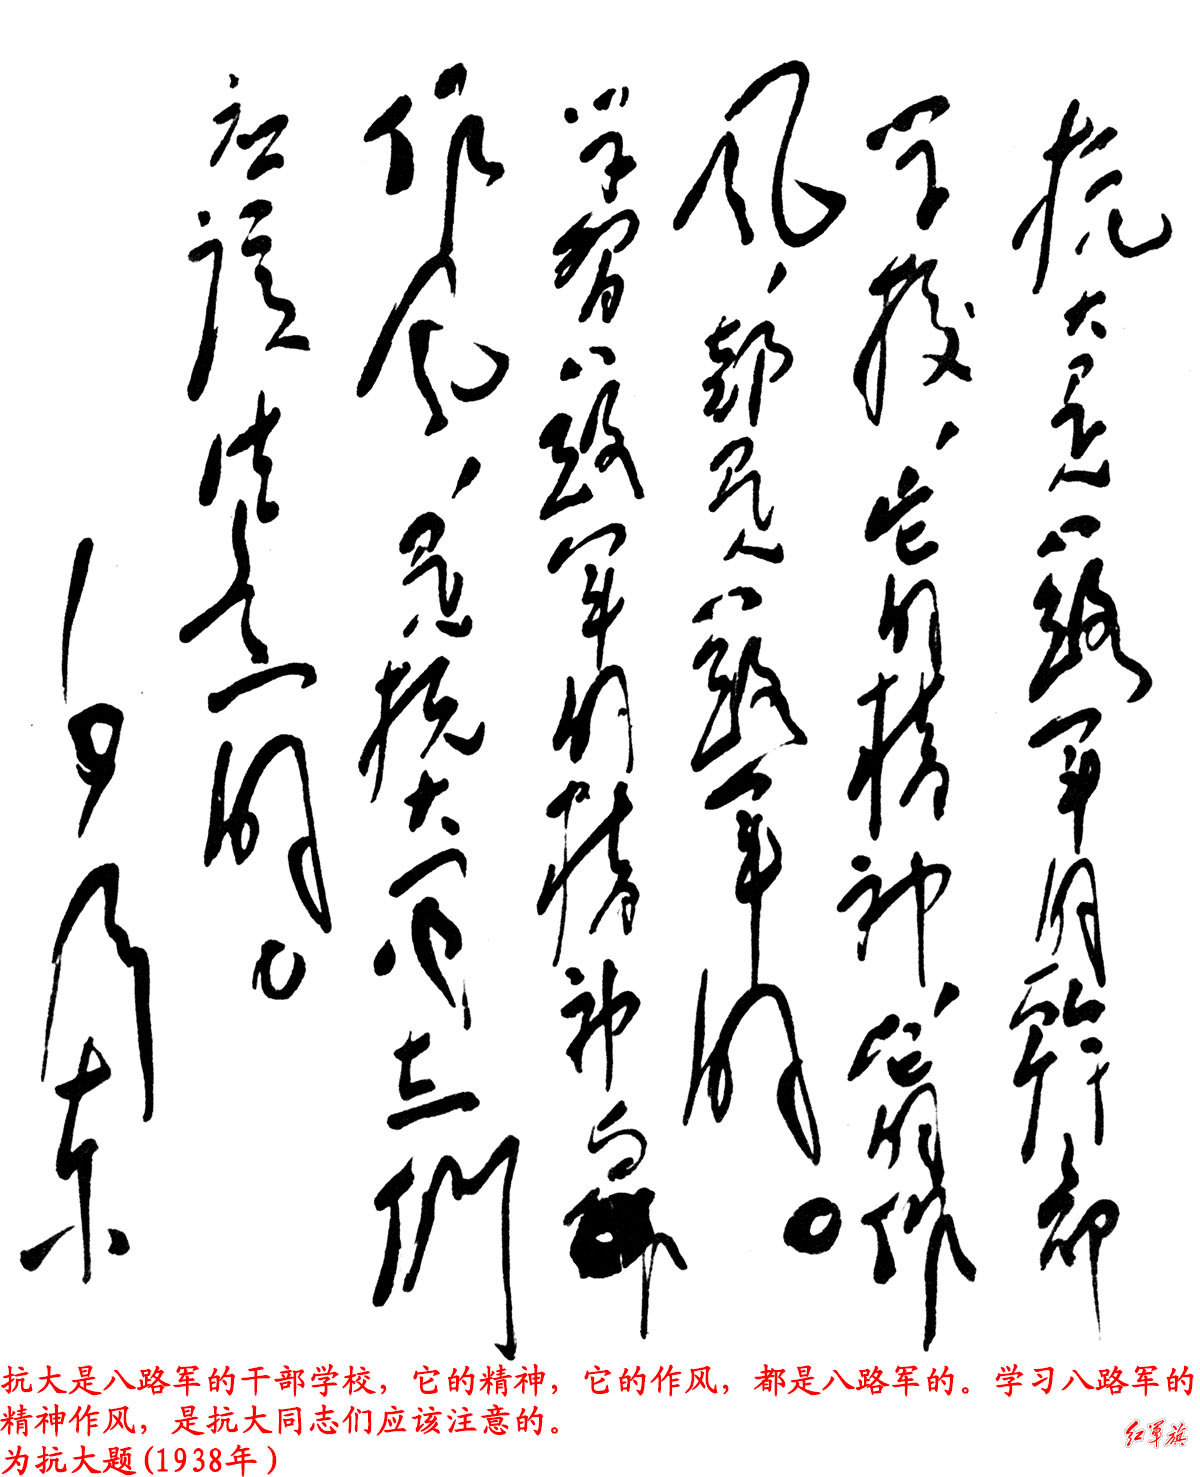 抗大是八路军的幹部
学校，它的精神，它的作
风，都是八路军的。
学習八路军的精神
作风，是抗大同志們
应该注意的。
毛泽东
抗大是八路军的干部学校，它的精神，它的作风，都是八路军的。学习八路军的
精神作风，是抗大同志们应该注意的。
为抗大题(1938年)
红军旗